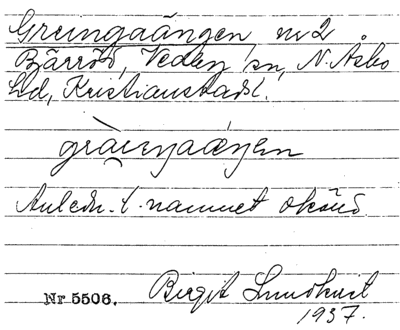 Greingaängen nr 2
Bärröd, Vedby sn, N. Åsbo
hd, Kristianstads l.
Anledn. t. namnet okänd.
Birgit Lundkvist
Nr 5506.
1937.